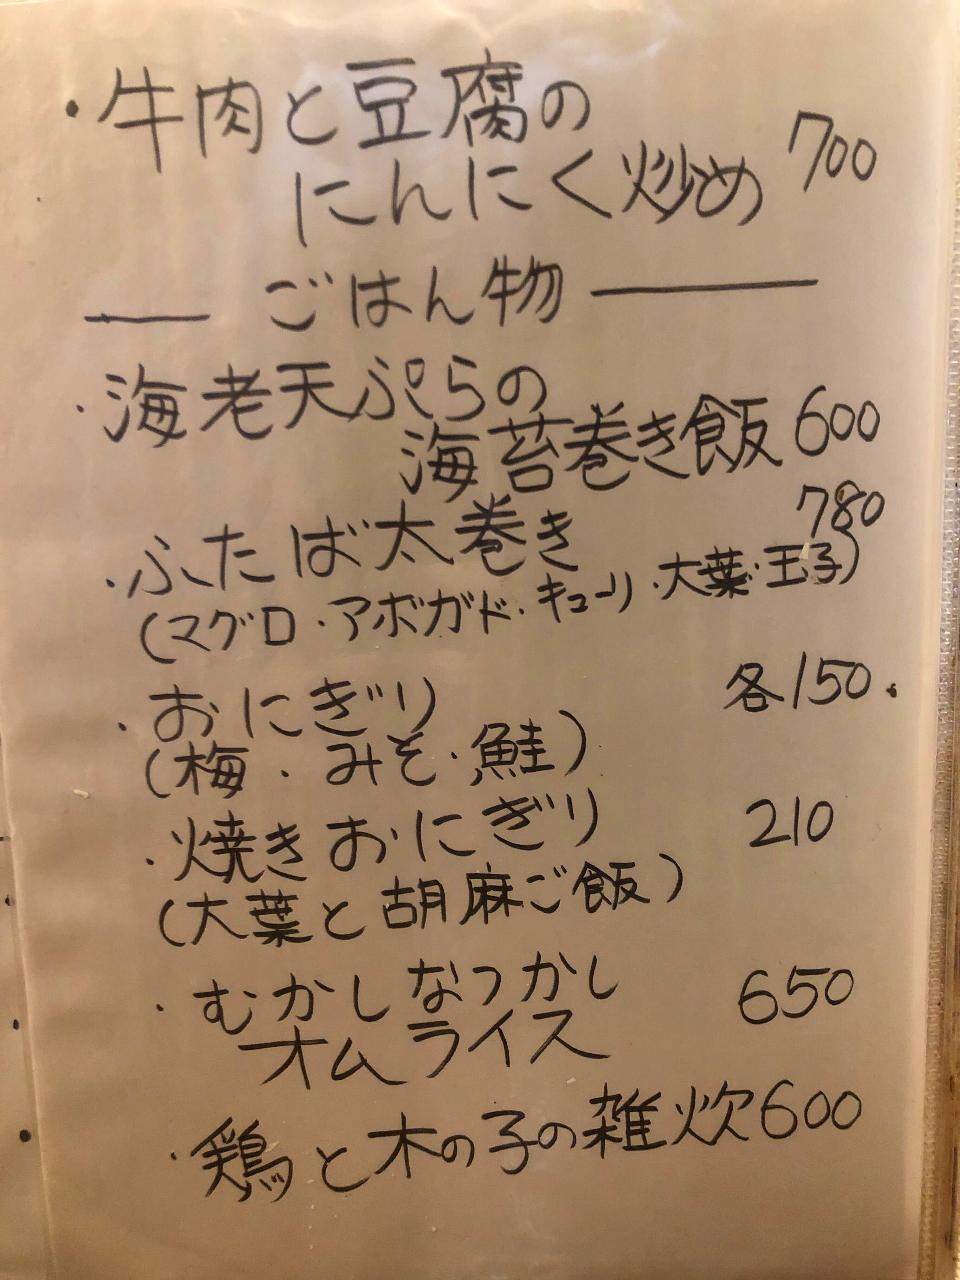 ・牛肉と豆腐の
にんにく炒め 700
ごはん物
・海老天ぷらの
海苔巻き飯 600
・ふたば太巻き 780
(マグロ・アボガド・キューリ・大葉・玉子)
・おにぎり 各150.
(梅・みそ・鮭)
・焼きおにぎり 210
(大葉と胡麻ご飯)
・むかしなつかし 650
オムライス
・鶏と木の子の雑炊 600